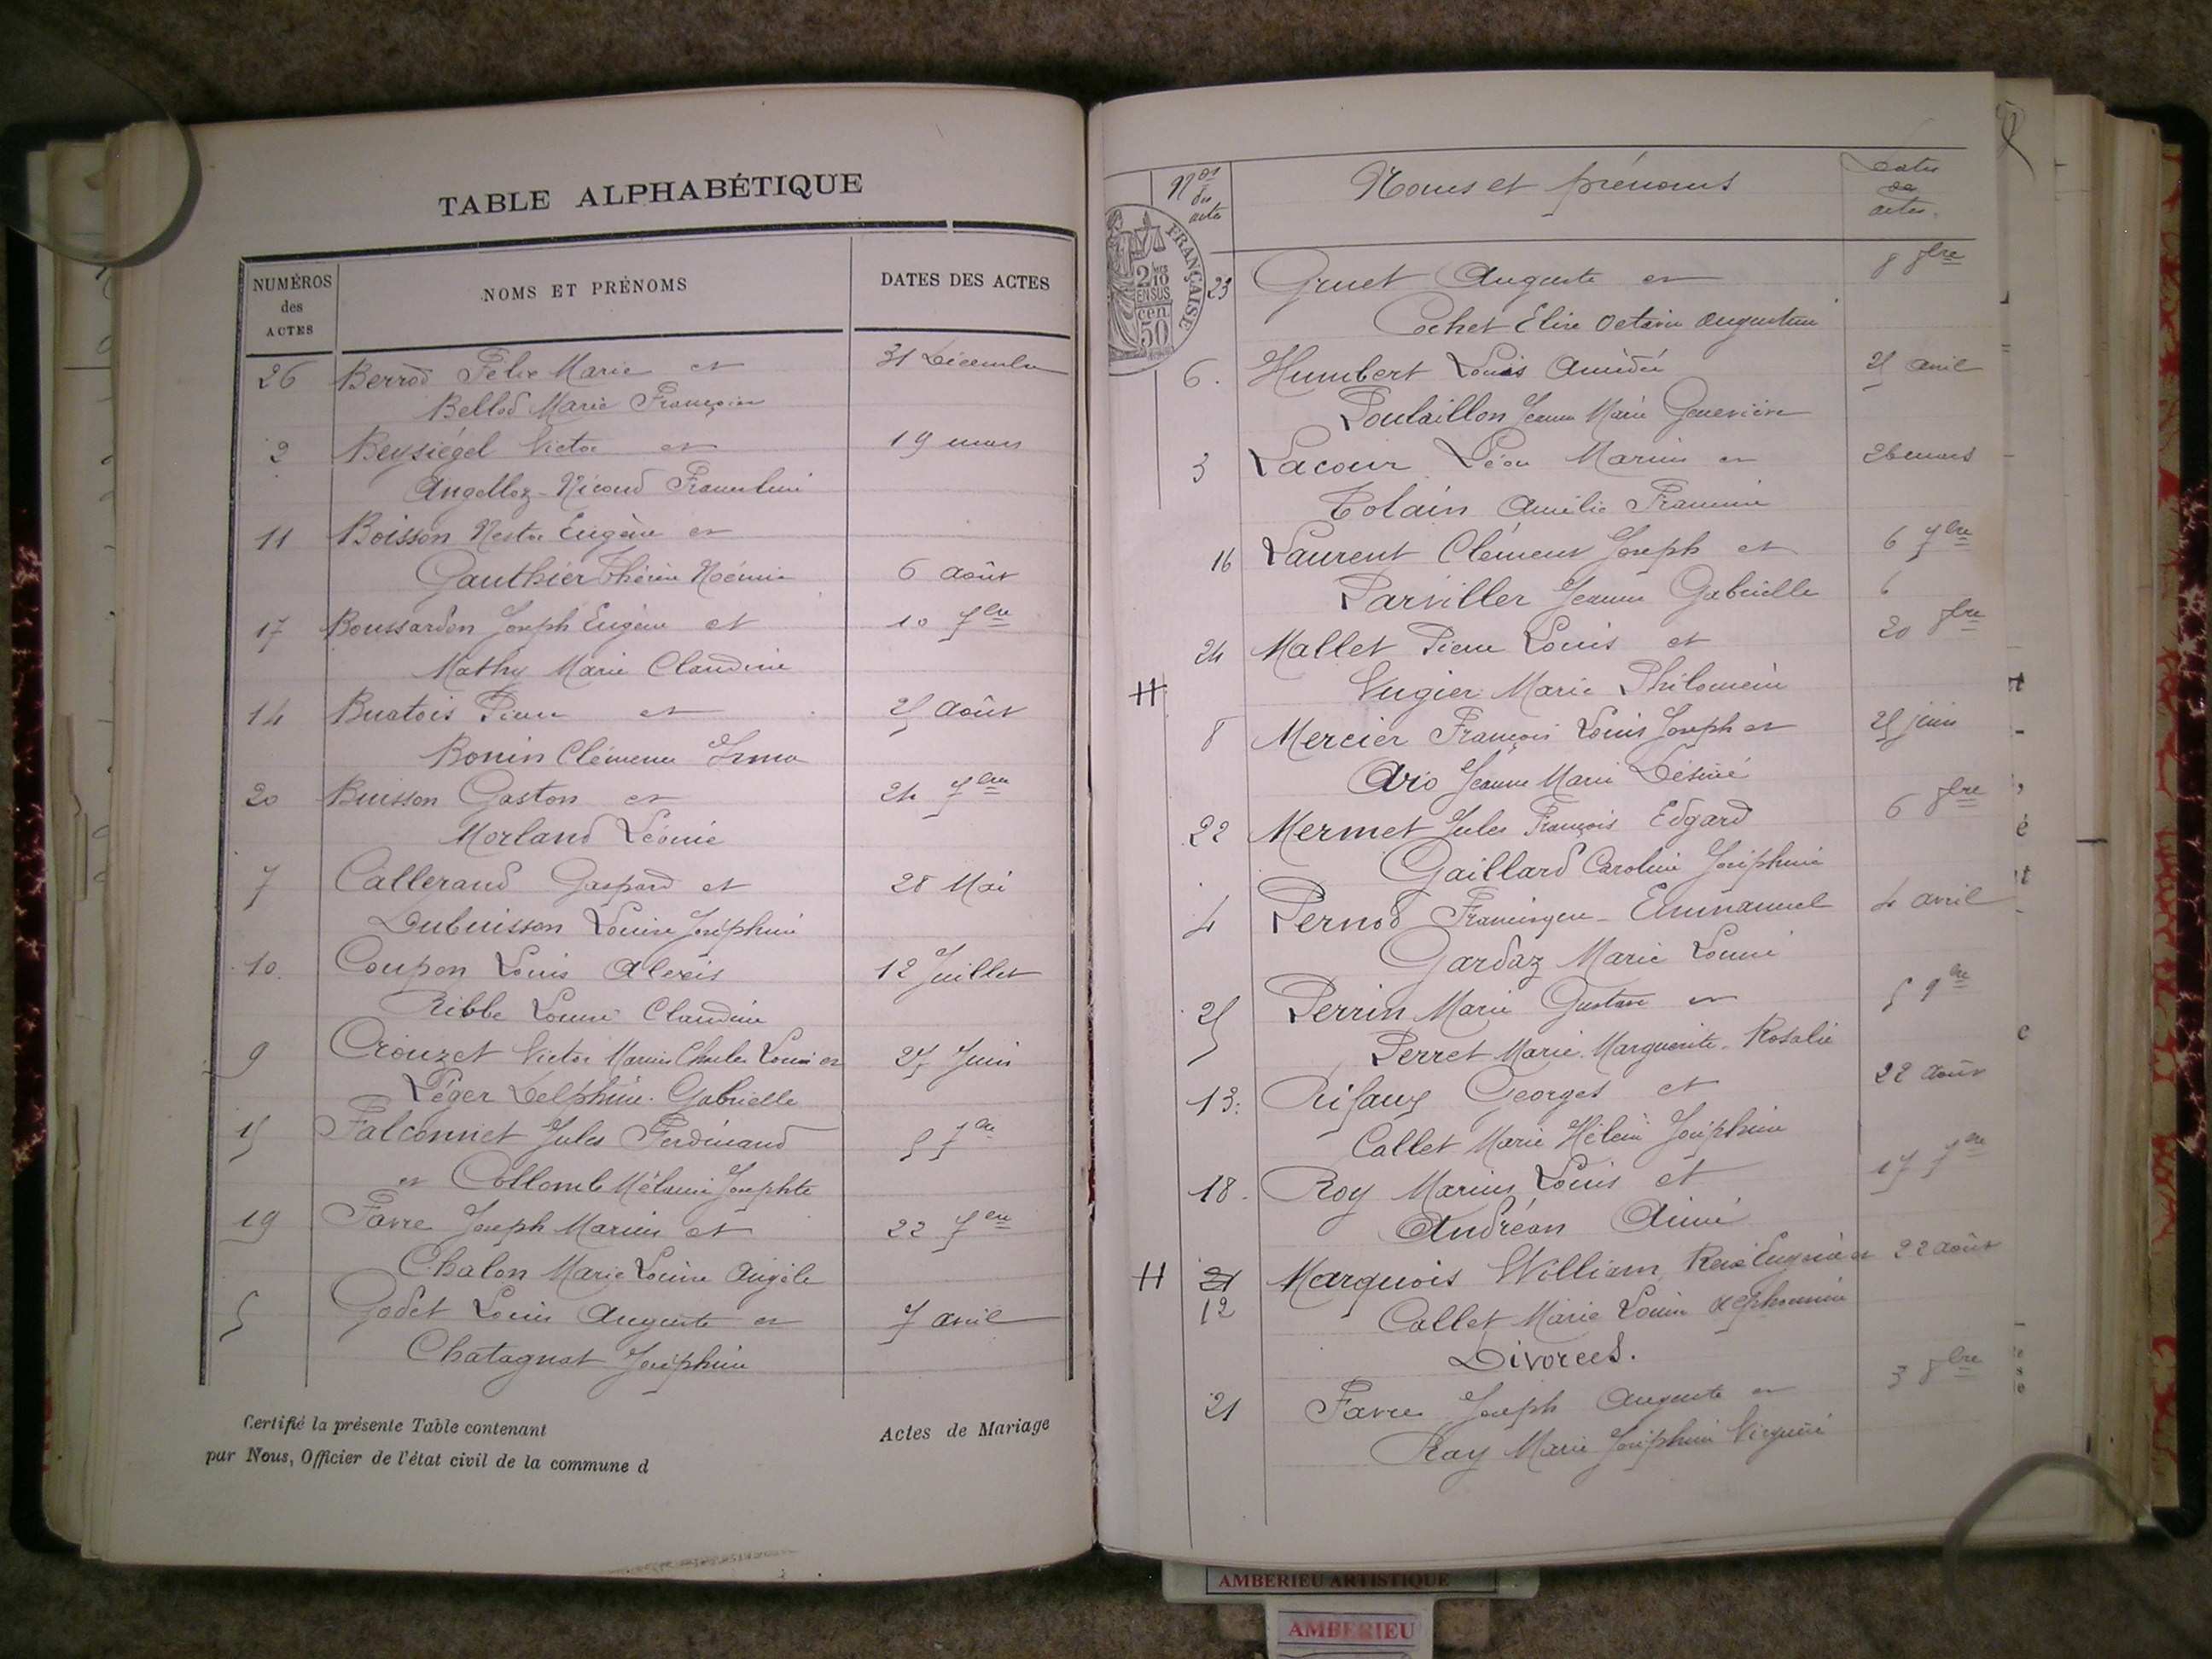 TABLE ALPHABÉTIQUE
NUMÉROS des ACTES
NOMS ET PRÉNOMS
DATES DES ACTES
26 Berrod Félix Marie et 31 Décembre
Bellod Marie Françoise
2 Beysiégel Victor et 19 mars
Angelloz-Nicoud
11 Boisson Nestor Eugène et
Gauthier Thérèse Noémie 6 août
17 Boussardon Joseph Eugène et 10 7bre
Mathy Marie Claudine
14 Buatois Pierre et 25 août
Bonin Clémence Irma
20 Buisson Gaston et 24 7bre
Morland Léonie
7 Callerand Gaspard et 28 Mai
Dubuisson Louise Joséphine
10. Coupon Louis Alexis 12 Juillet
Ribbe Louise Claudine
9 Crouzet Victor Marius Charles Louis et Juin
Léger Delphine Gabrielle
15 Falconnet Jules Ferdinand 5 7bre
et Collomb Mélanie Josephte
19 Favre Joseph Marius et 22 7bre
Chalon Marie Louise Angèle
5 Godet Louis Auguste et 7 avril
Chatagnat Joséphine
Certifié la présente Table contenant Actes de Mariage
par Nous, Officier de l'état civil de la commune d
Nos des actes
Noms et prénoms
Dates des actes.
FRANÇAISE
2/10 EN SUS
50 cen
23 Gruet Auguste et 8 8bre
Cochet Elise Octavie Augustine
6. Humbert Louis Amédée 25 avril
Poulaillon Jeanne Marie Geneviève
3 Lacour Léon Marius et 26 mars
Tolain Amélie
16 Laurent Clément Joseph et 6 7bre
Parviller Jeanne Gabrielle 6
24 Mallet Pierre Louis et 20 8bre
Vugier Marie Philomène
H
8 Mercier François Louis Joseph et 25 juin
Ario Jeanne Marie Désirée
22 Mermet Jules François Edgard 6 8bre
Gaillard Caroline Joséphine
4 Pernod Francisque-Emmanuel 4 avril
Gardaz Marie Louise
25 Perrin Marie Gustave et 5 9bre
Perret Marie Marguerite-Rosalie
13. Rifaux Georges et 22 août
Callet Marie Hélène Joséphine
18. Roy Marius Louis et 17 7bre
Andréan Aimée
H 21 Marquois William René Eugène et 22 août
12 Callet Marie Louise
Divorcés.
21 Favre Joseph Auguste et 3 8bre
Ray Marie Joséphine Virginie
AMBERIEU ARTISTIQUE
AMBERIEU